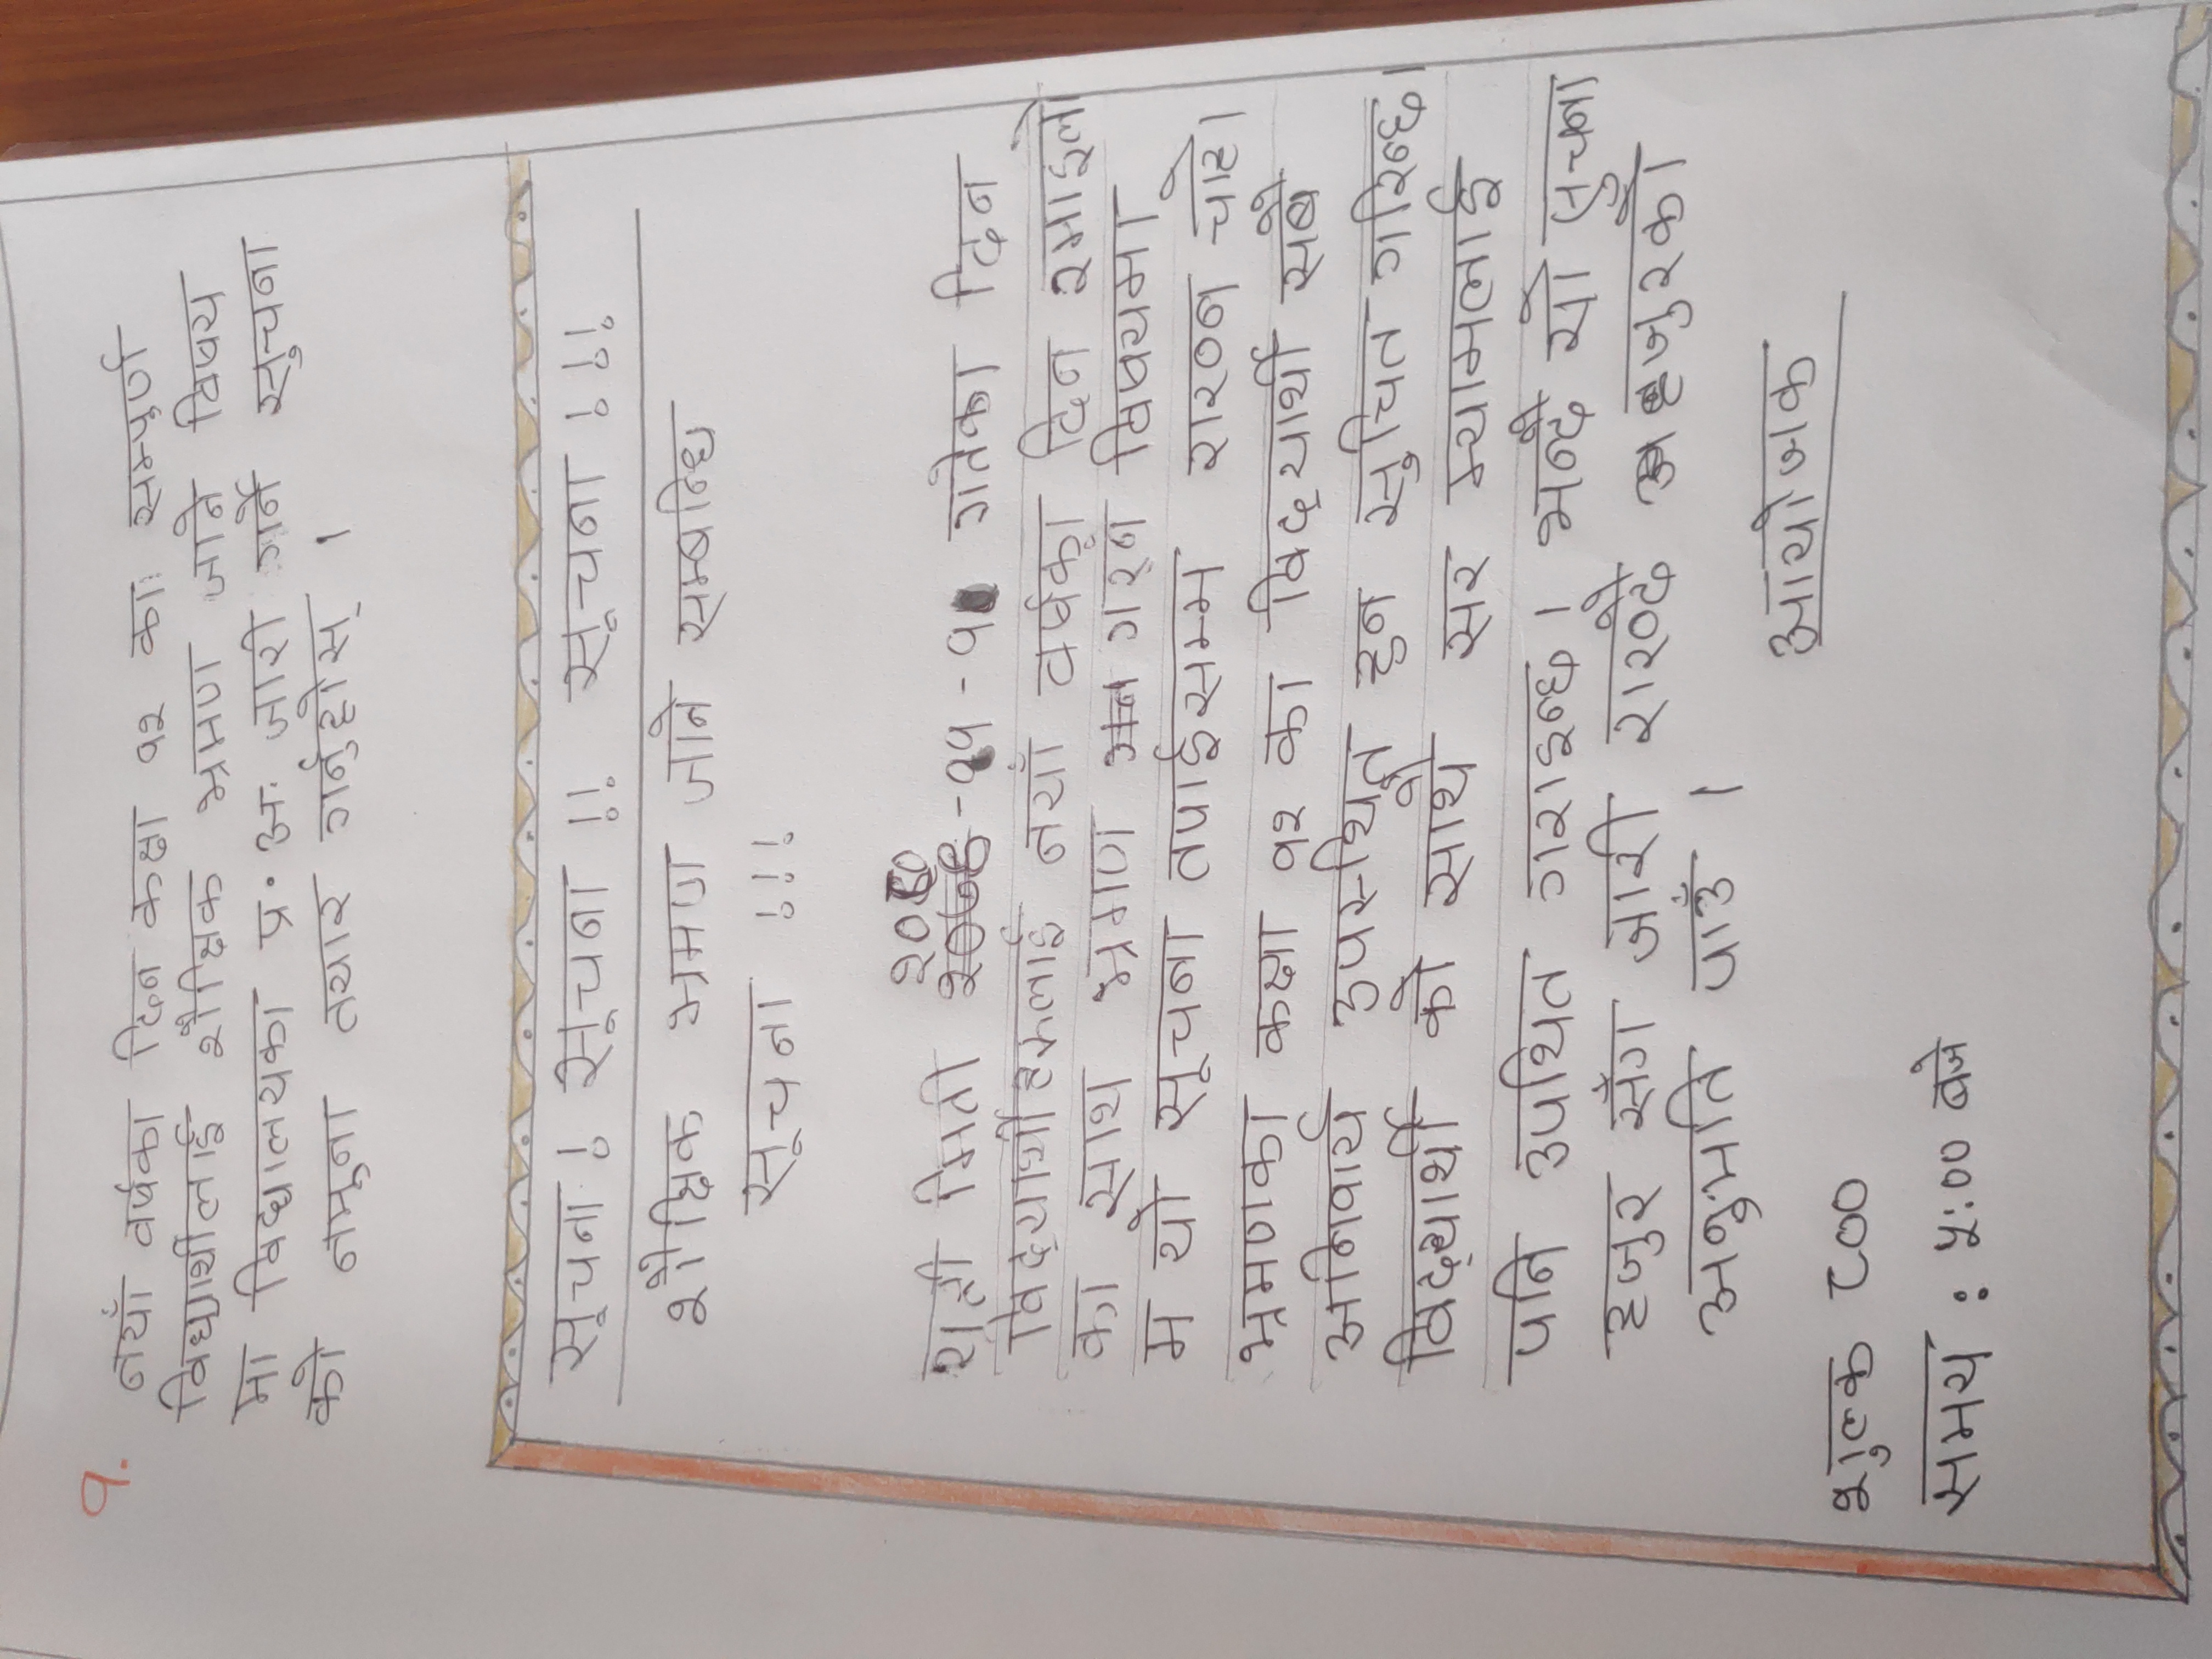 १.
नयाँ वर्षका दिन कक्षा १२ का सम्पुर्ण
विद्यार्थीलाई शैक्षिक भ्रमण जाने विषय
मा विद्यालयका प्र. अ. जारी गर्ने सुचना
को नमुना तयार गर्नुहोस् ।
सूचना ! सूचना !! सूचना !!!
शैक्षिक भ्रमण जाने सम्बन्धि
सूचना !!!
२०८०
यही मिती -११-१ गतेका दिन
विद्यार्थीहरुलाई नयाँ वर्षका दिन रमाइलो
का साथ भ्रमण गर्न विषयमा
म यो सूचना तपाईसम्म राख्न चाहे।
भ्रमणका कक्षा १२ का विद्यार्थी सबै
अनिवार्य उपस्थित हुन सुचित गरिन्छ।
विद्यार्थी को साथै सर म्यामलाई
पनि उपथित गराइन्छ। भन्दै यो सुचना
हजुर सँग जारी राख्दै हजुरको
अनुमति पाउँ ।
आयोजक
शुल्क ८००
समय : ५:०० बजे